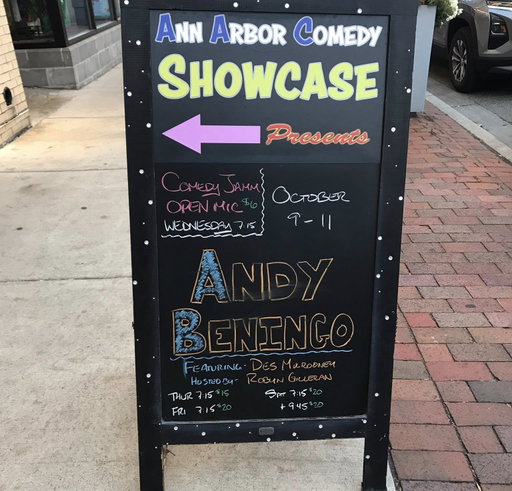 ANN ARBOR COMEDY
SHOWCASE
Presents
COMEDY JAMM
OPEN MIC $6
WEDNESDAY 7:15
OCTOBER
9-11
ANDY
BENINGO
FEATURING: DES MULROONEY
HOSTED BY: ROBYN GILLERAN
THUR 7:15 $15
FRI 7:15 $20
SAT 7:15 $20
+ 9:45 $20